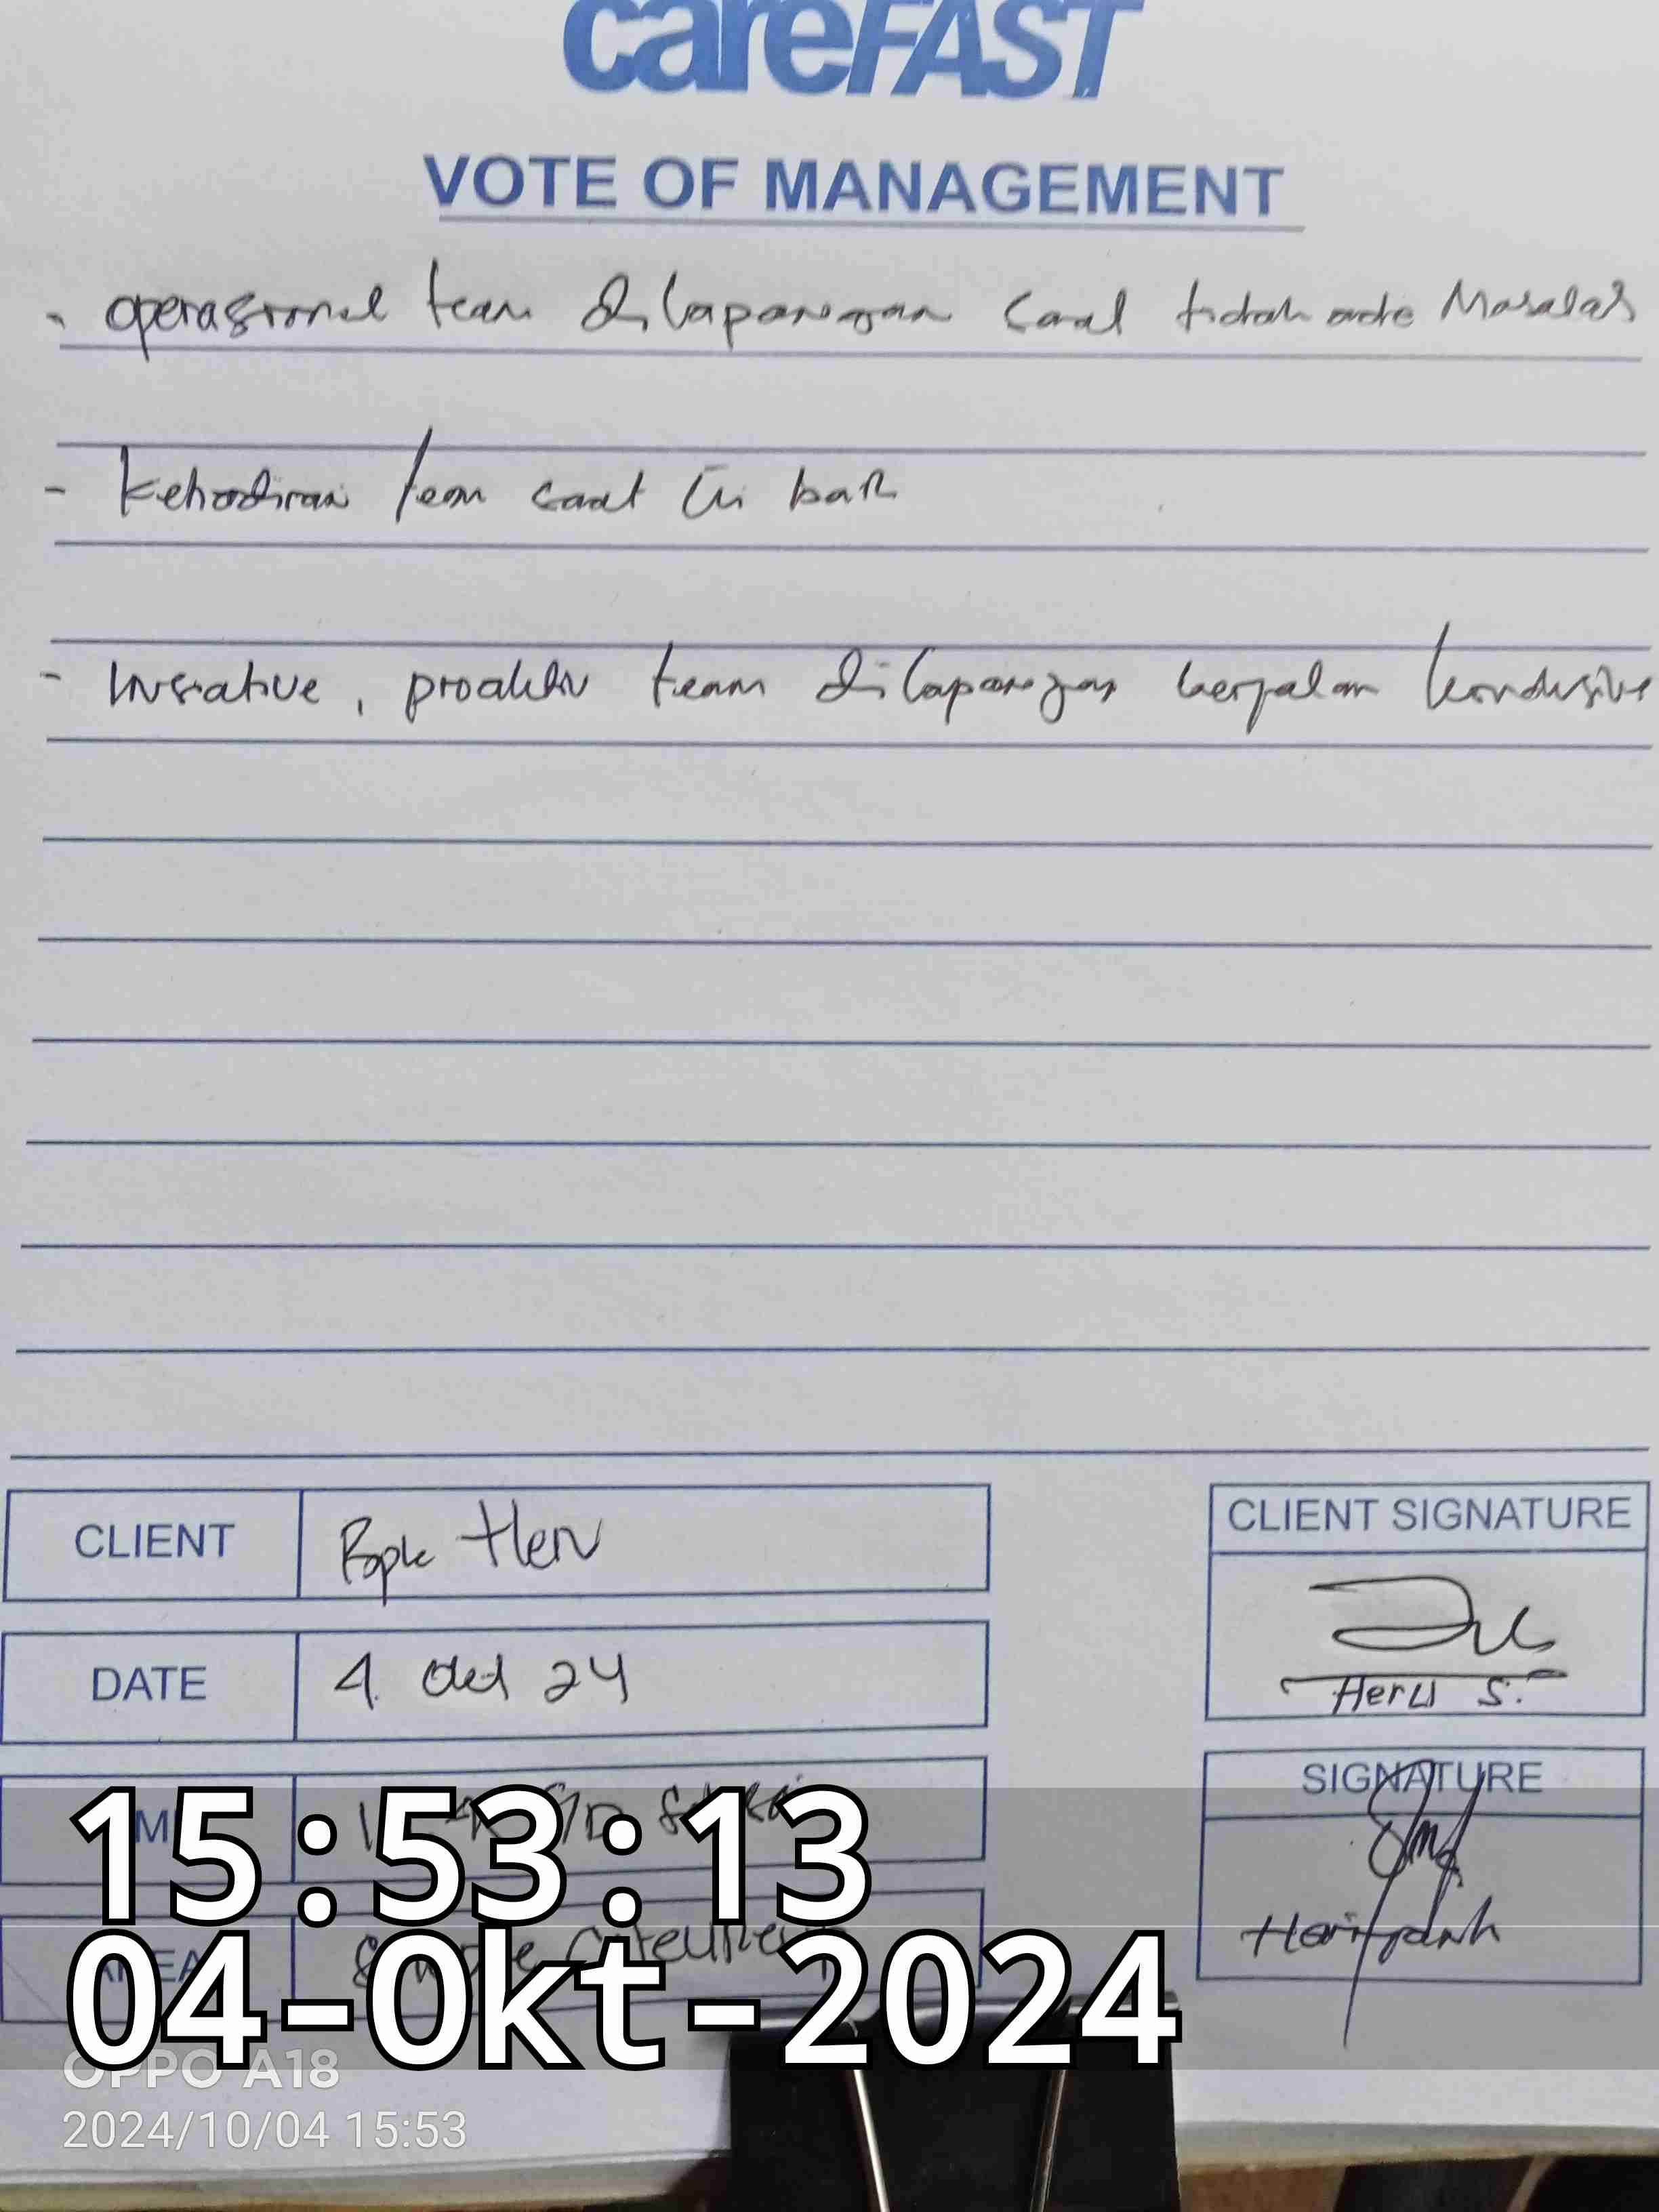 careFAST
VOTE OF MANAGEMENT
- operasional team dilapangan saat tidak ada Masalah
- Kehadiran team saat ini baik
- Inisiative, proaktiv team dilapangan berjalan kondusive
CLIENT Bapk Heru
DATE 4 Okt 24
CLIENT SIGNATURE
Heru S.
SIGNATURE
15:53:13
04-Okt-2024
OPPO A18
2024/10/04 15:53